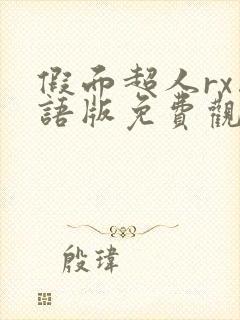 假面超人rx
語版免費觀
殷瑋